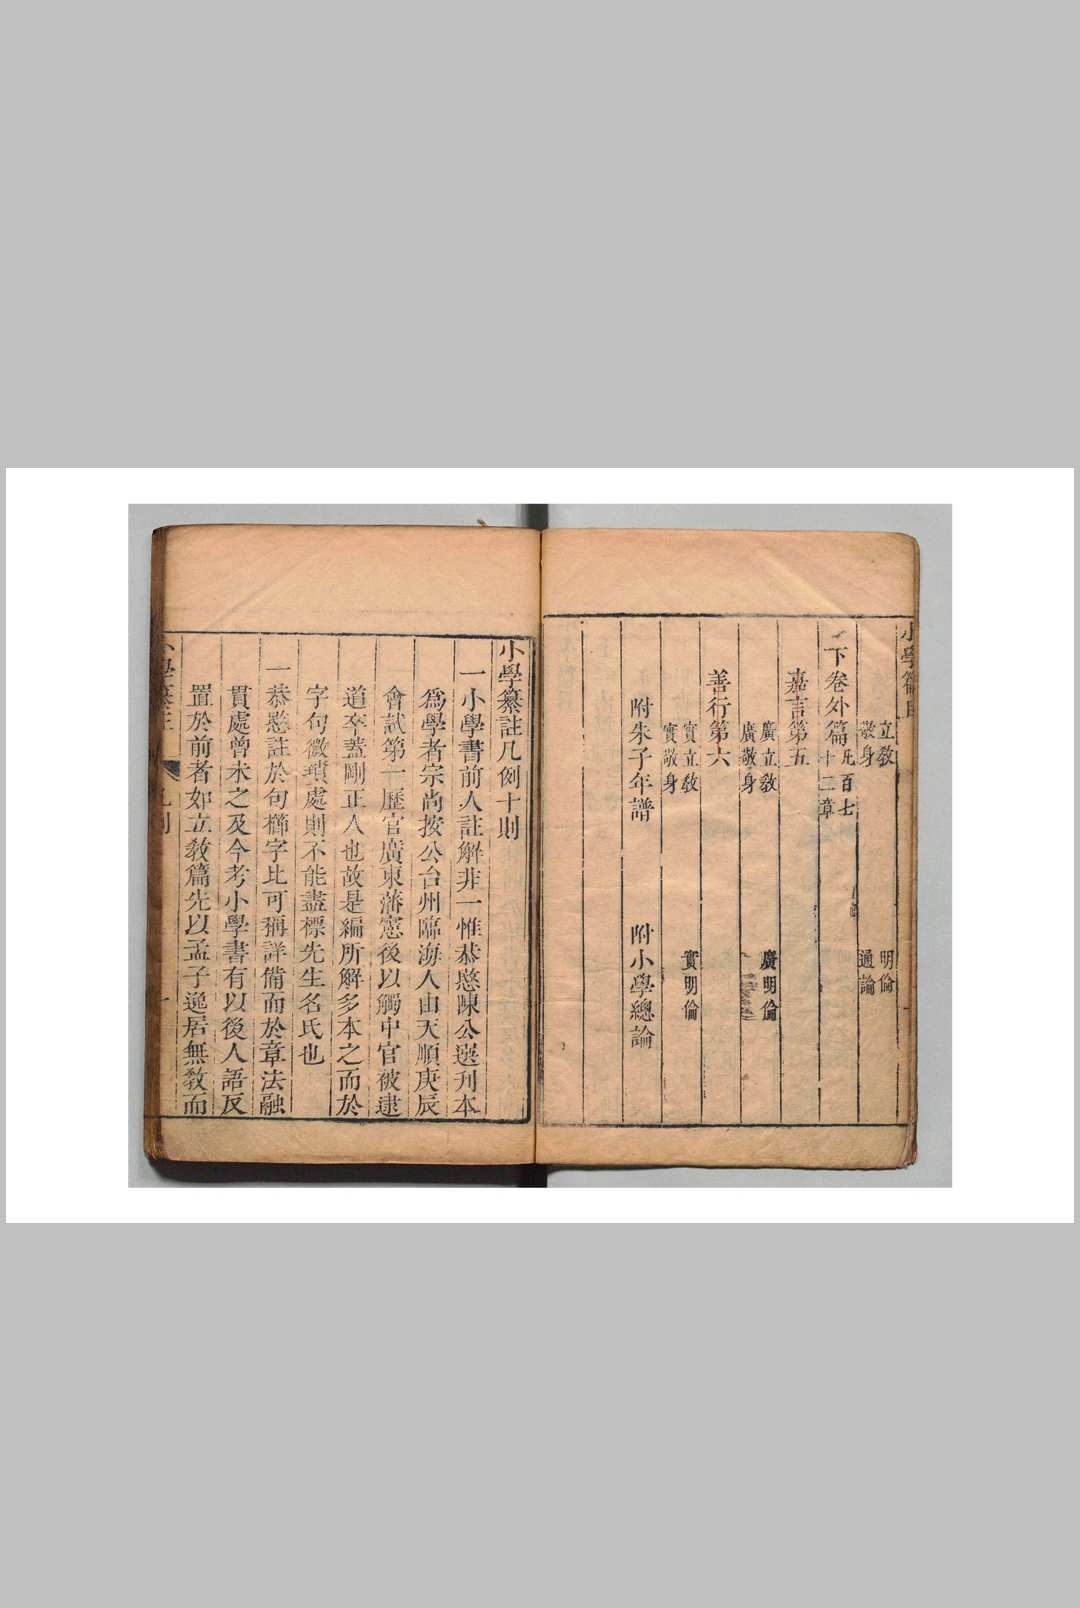 小學篇目
立教 明倫
敬身 通論
下卷外篇 凡百七十二章
嘉言第五
廣立教 廣明倫
廣敬身
善行第六
實立教 實明倫
實敬身
附朱子年譜 附小學總論
小學纂註凡例十則
一小學書前人註解非一惟恭愍陳公選刊本
爲學者宗尚按公台州臨海人由天順庚辰
會試第一歷官廣東藩憲後以觸中官被逮
道卒蓋剛正人也故是編所解多本之而於
字句微瑣處則不能盡標先生名氏也
一恭愍註於句櫛字比可稱詳備而於章法融
貫處曾未之及今考小學書有以後人語反
置於前者如立敎篇先以孟子逸居無敎而
小學纂註 凡例 一